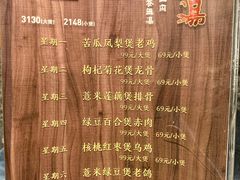 3130(大煲) 2148(小煲)
湯
星期一 苦瓜凤梨煲老鸡
99元/大煲 69元/小煲
星期二 枸杞菊花煲龙骨
99元/大煲 69元/小煲
星期三 薏米莲藕煲排骨
99元/大煲 69元/小煲
星期四 绿豆百合煲赤肉
99元/大煲 69元/小煲
星期五 核桃红枣煲乌鸡
99元/大煲 69元/小煲
星期六 薏米绿豆煲老鸽